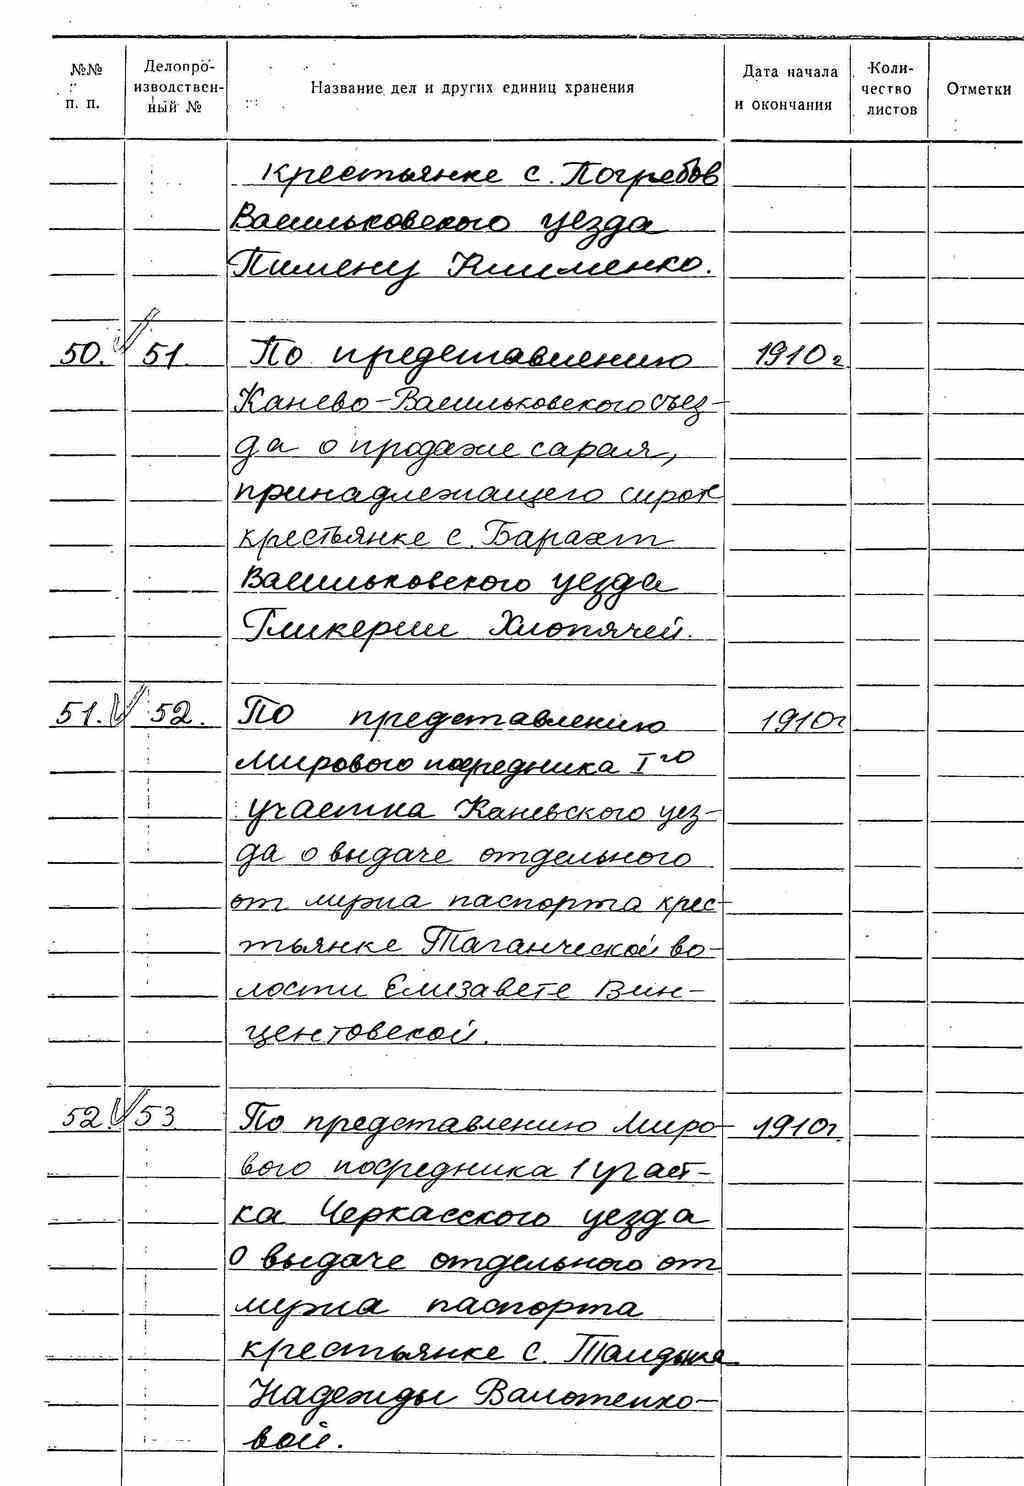 №№ п. п. Делопроизводственный № Название дел и других единиц хранения Дата начала и окончания Количество листов Отметки
крестьянке с. Погребов
Васильковского уезда
Пимену Клименко.
50. 51. По представлению 1910 г.
Канево-Васильковского съез-
да о продаже сарая,
принадлежащего сирот
крестьянке с. Барахт
Васильковского уезда
Гликерии Хлопячей.
51. 52. По представлению 1910г
Мирового посредника I го
участка Каневского уез-
да о выдаче отдельного
от мужа паспорта крес-
тьянке Таганческой во-
лости Елизавете Вин-
центовской.
52. 53 По представлению Миро- 1910г.
вого посредника 1 участ-
ка Черкасского уезда
о выдаче отдельного от
мужа паспорта
крестьянке с.
Надежды
вой.